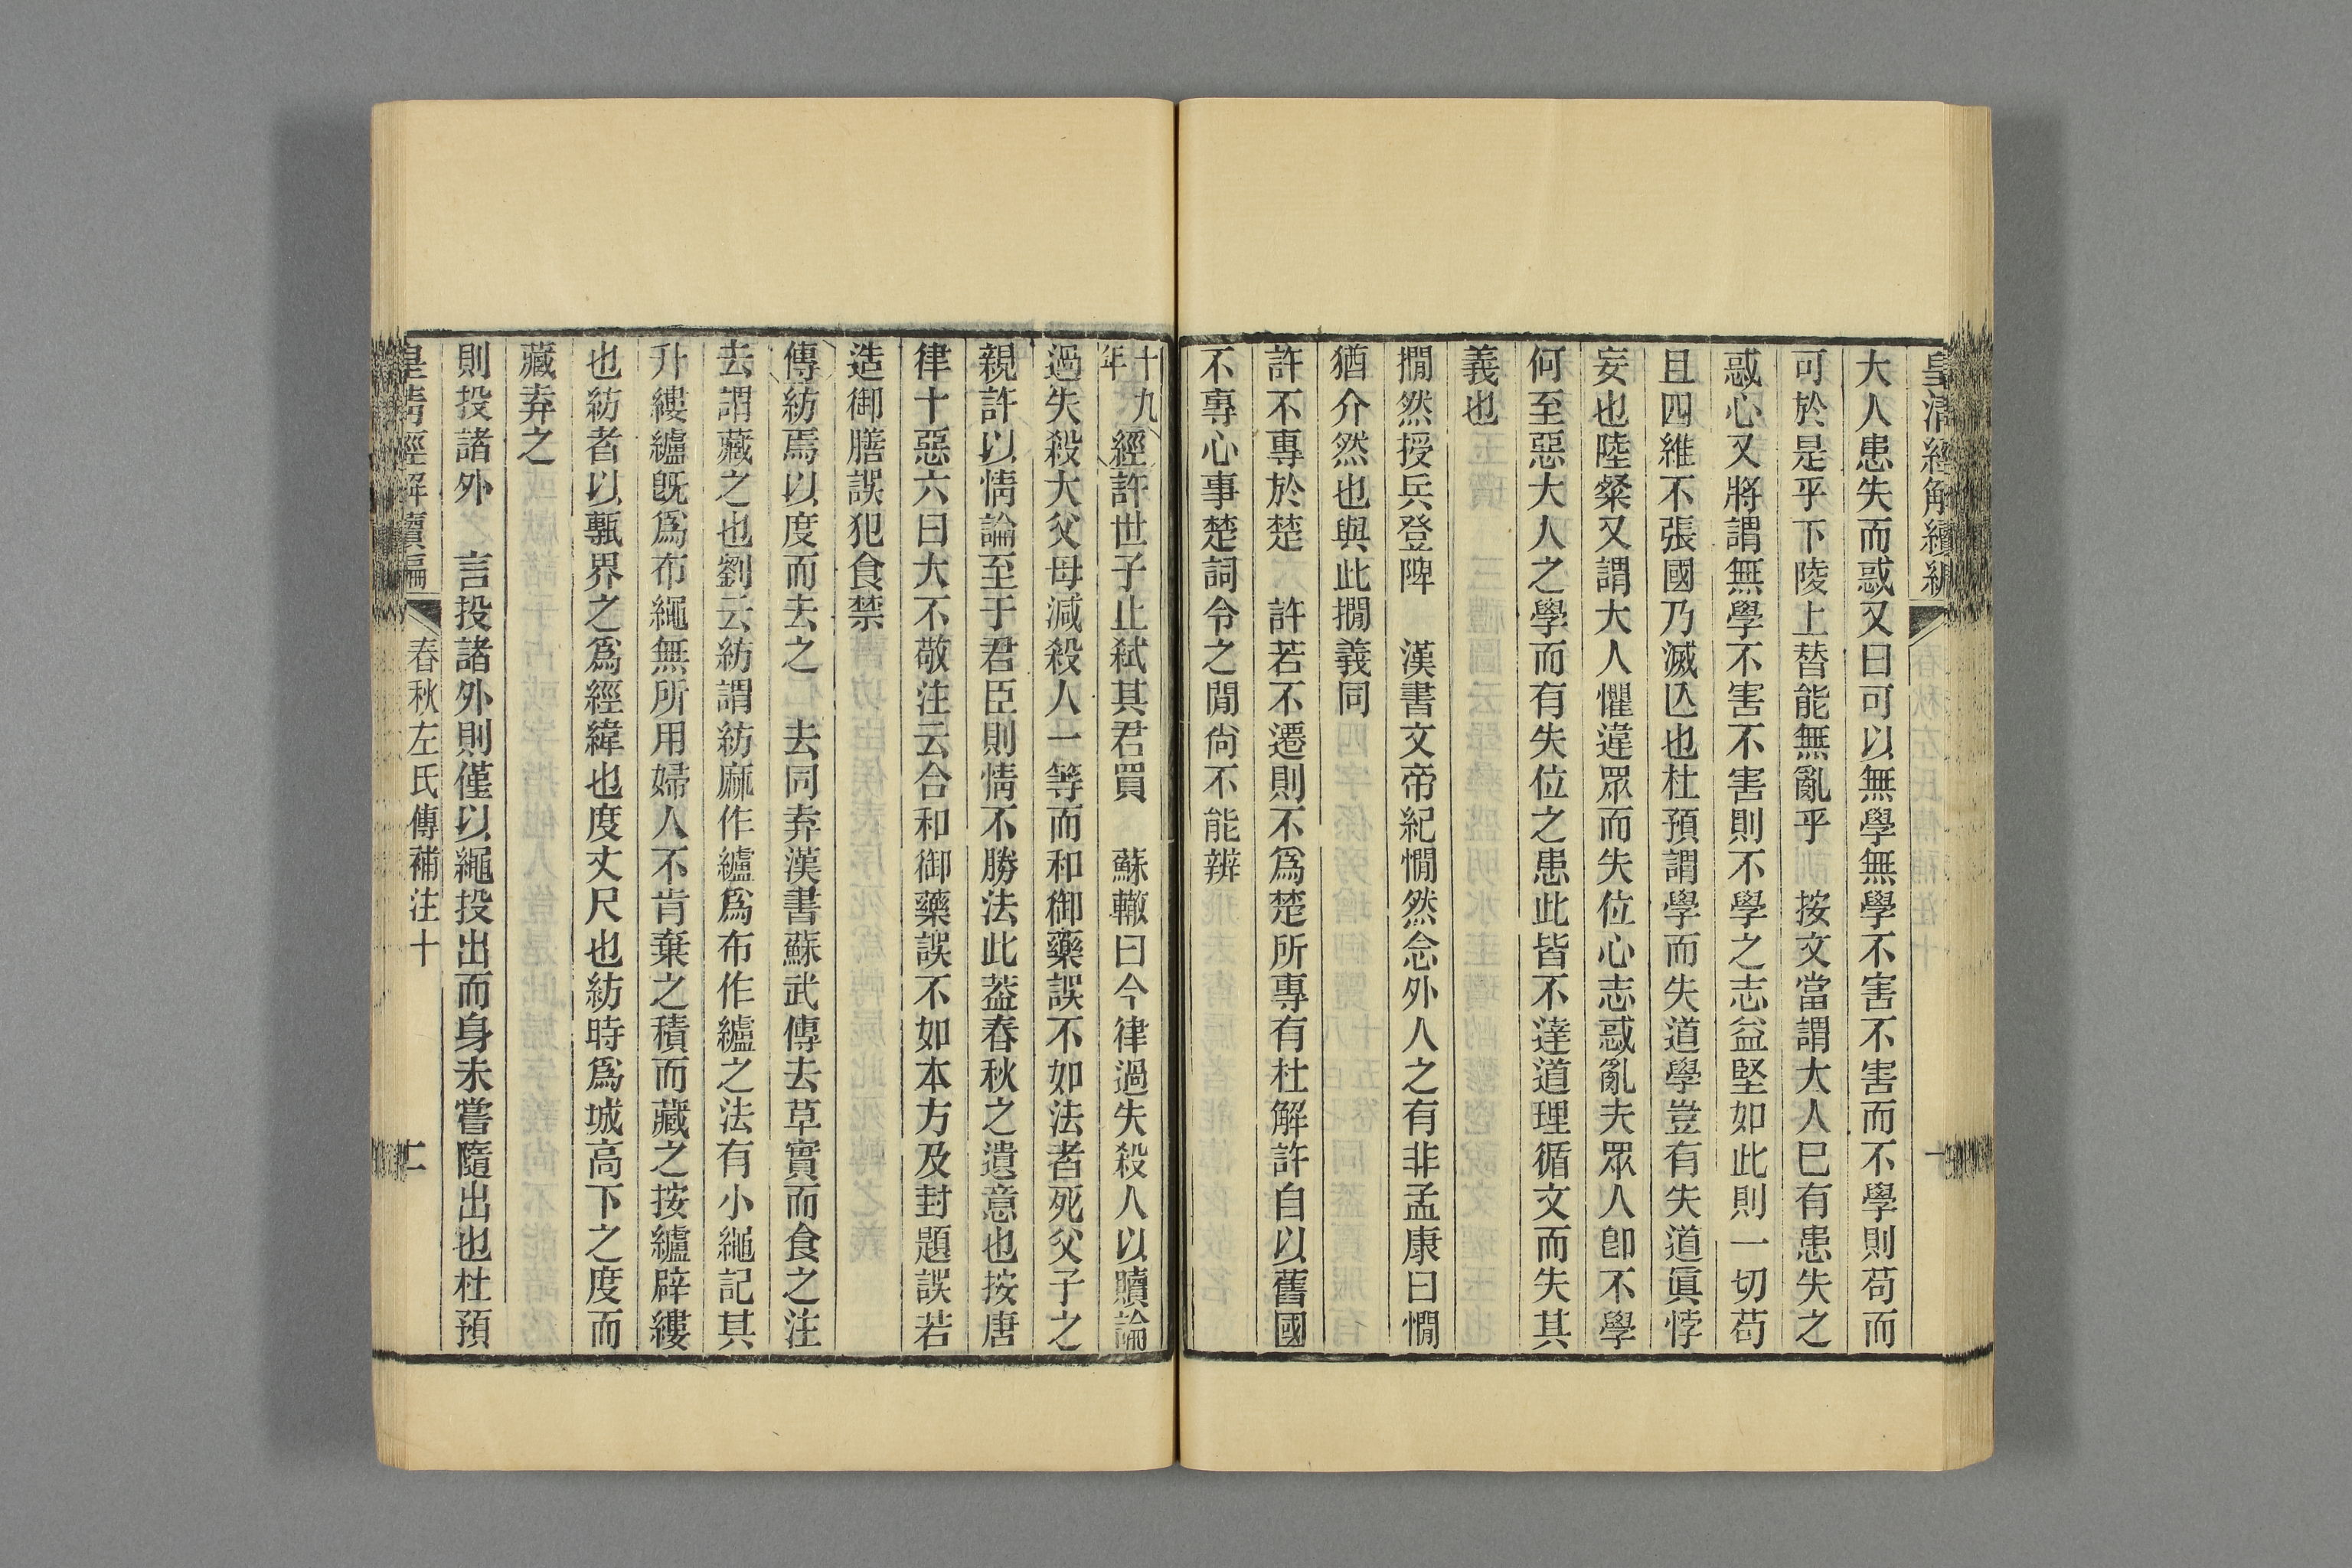 皇清經解續編
春秋左氏傳補注十
一
大人患失而惑又曰可以無學無學不害不害而不學則苟而
可於是乎下陵上替能無亂乎　按文當謂大人巳有患失之
惑心又將謂無學不害不害則不學之志益堅如此則一切苟
且四維不張國乃滅亾也杜預謂學而失道學豈有失道眞悖
妄也陸粲又謂大人懼違眾而失位心志惑亂夫眾人卽不學
何至惡大人之學而有失位之患此皆不達道理循文而失其
義也
撊然授兵登陴　漢書文帝紀憪然念外人之有非孟康曰憪
猶介然也與此撊義同
許不專於楚　許若不遷則不爲楚所專有杜解許自以舊國
不專心事楚詞令之閒尙不能辨
十九年經許世子止弑其君買　蘇轍曰今律過失殺人以贖論
過失殺大父母減殺人一等而和御藥誤不如法者死父子之
親許以情論至于君臣則情不勝法此葢春秋之遺意也按唐
律十惡六曰大不敬注云合和御藥誤不如本方及封題誤若
造御膳誤犯食禁
傳紡焉以度而去之　去同弆漢書蘇武傳去草實而食之注
去謂藏之也劉云紡謂紡麻作纑爲布作纑之法有小繩記其
升縷纑旣爲布繩無所用婦人不肯棄之積而藏之按纑辟縷
也紡者以甎界之爲經緯也度丈尺也紡時爲城高下之度而
藏弆之
則投諸外　言投諸外則僅以繩投出而身未嘗隨出也杜預
皇清經解續編
春秋左氏傳補注十
二